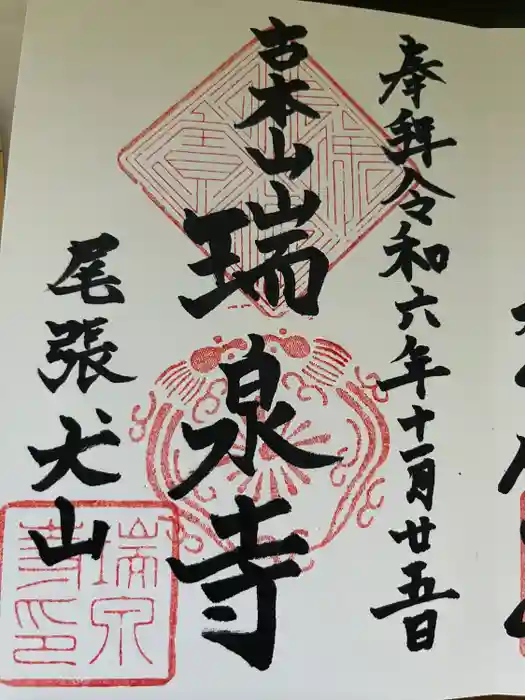 奉拜令和六年十一月廿五日
古本山
瑞泉寺
尾張犬山
瑞泉
寺印